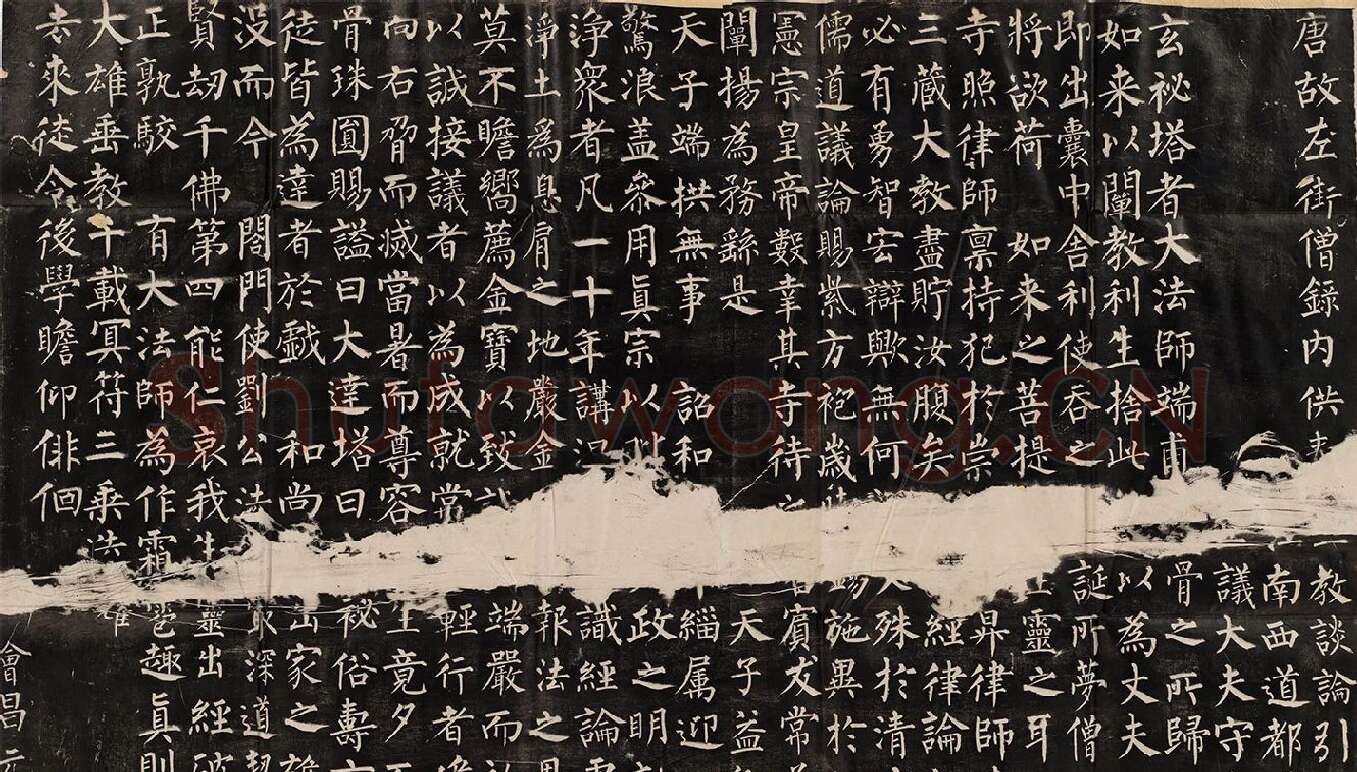 唐故左街僧錄內供奉 教談論引
南西道都
議大夫守
玄祕塔者大法師端甫 骨之所歸
如来以闡教利生捨此 以為丈夫
即出囊中舍利使吞之 誕所夢僧
將欲荷 如来之菩提 生靈之耳
寺照律師禀持犯於崇 昇律師
三藏大教盡貯汝腹矣 經律論
必有勇智宏辯歟無何 殊於清
儒道議論賜紫方袍歲 錫施異於
憲宗皇帝數幸其寺待之 賓友常
闡揚為務繇是 天子益
天子端拱無事 詔和 緇属迎
驚浪盖叅用真宗以 政之明
浄衆者凡一十年講 識經論
淨土爲息肩之地嚴金 報法之
莫不瞻嚮薦金寶以致 端嚴而
以誠接議者以為成就常 輕行者
向右脅而滅當暑而尊容 生竟夕
骨珠圓賜謚曰大達塔曰 祕俗壽
徒皆為達者於戲 和尚 出家之
没而今 閤門使劉公法 深道契
賢劫千佛第四能仁哀我生 靈出經破
正孰駮 有大法師為作霜 雹趣真則
大雄垂教千載冥符三乗 雄
去来徒令後學瞻仰俳佪
會昌元
Shufawang.CN